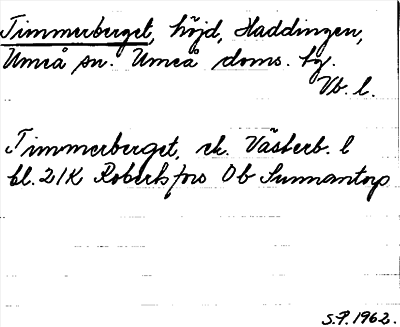 Timmerberget, höjd, Haddingen,
Umeå sn. Umeå doms. tg.
Vb. l.
Timmerberget, ek. Västerb. l
bl. 21K Robertsfors Ob Sunnantorp
S.P. 1962.